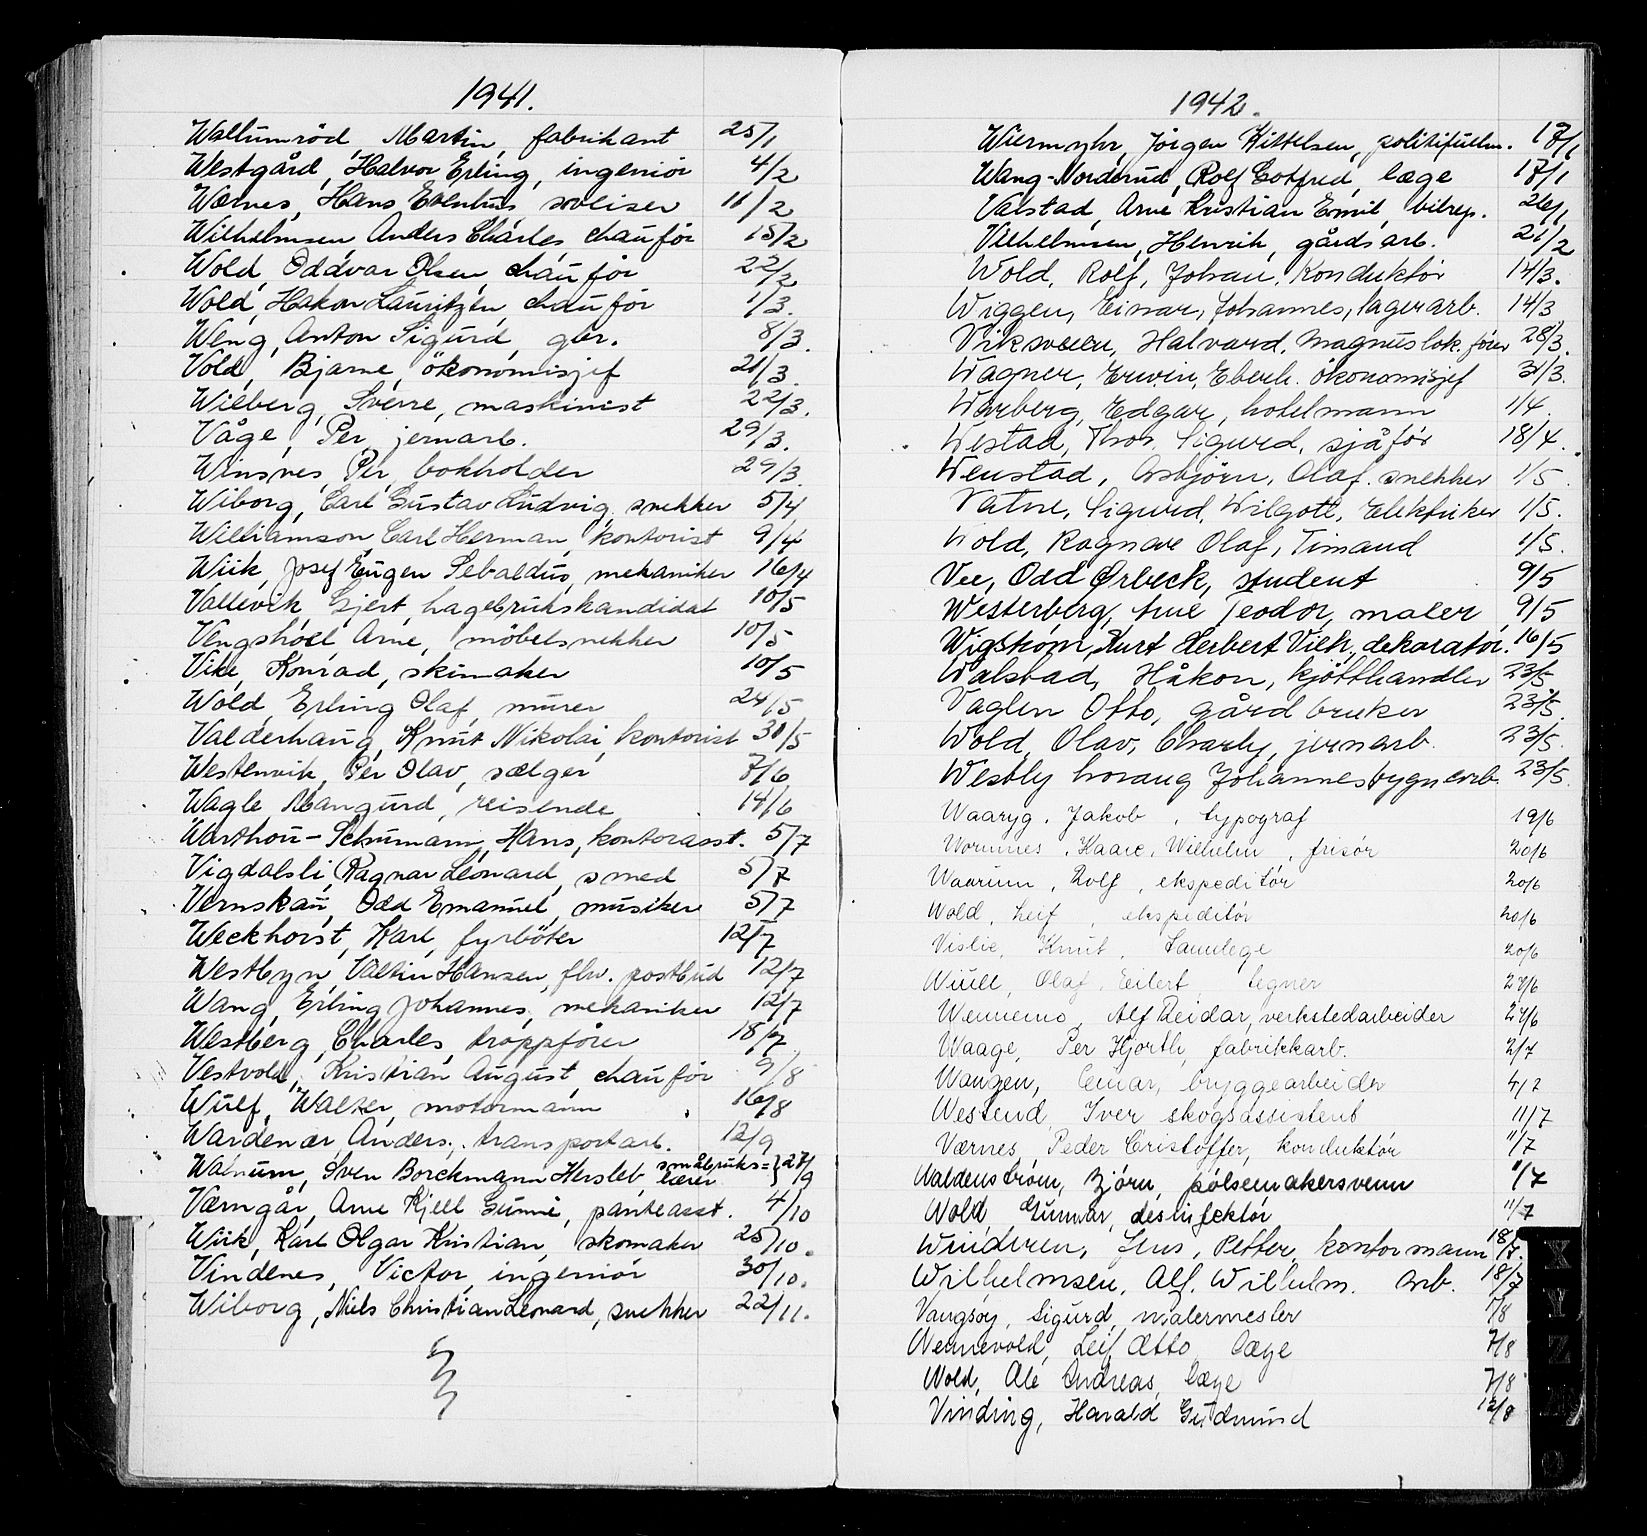 1941.
Wallumrød, Martin, fabrikant 25/1
Westgård, Halvor Erling, ingeniør 4/2
Wærnes, Hans Evenlus 11/2
Wilhelmsen Anders Charles, chauför 15/2
Wold, Oddvar Olsen, chauför 22/2
Wold, Håkon Lauritzen, chauför 1/3.
Weng, Anton Sigurd, gbr. 8/3.
Vold, Bjarne, økonomisjef 21/3.
Wieberg, Sverre, maskinist 22/3.
Våge, Per jernarb. 29/3.
Winsnes, Per, bokholder 29/3.
Wiborg, Carl Gustav Ludvig, snekker 5/4
Williamson, Carl Herman, kontorist 9/4
Wiik, Josef Eugen Sebaldus, mekaniker 16/4
Vallevik, Gjert, hagebrukskandidat 10/5
Vengshoel Arne, möbelsnekker 10/5
Vike, Konrad, skimaker 10/5
Wold, Erling Olaf, murer 24/5
Valderhaug, Knut Nikolai, kontorist 31/5
Westenvik, Per Olav, sælger 7/6
Wagle, Mangurd, reisende 14/6
Warthou-Schumann, Hans, kontorasst. 5/7
Vigdalsli, Ragnar Leonard, smed 5/7
Vernskau, Odd Emanuel, musiker 5/7
Weckhorst, Karl, fyrböter 12/7
Westbyn, Valtin Hansen, fhv. postbud 12/7
Wang, Erling Johannes, mekaniker 12/7
Westberg, Charles, troppfører 18/7
Vestvold, Kristian August, chauför 9/8
Wulf, Walter, motormann 16/8
Wardenær Anders, transportarb. 12/9
Walnum, Sven Borckmann Hersleb, småbruks=lærer 27/9
Værngår, Arne Kjell Gunne, panteasst. 4/10
Wiik, Karl Olgar Kristian, skomaker 25/10.
Vindenes, Victor, ingeniör 30/10.
Wiborg, Niels Christian Leonard, snekker 22/11.
1942.
Wiermyhr, Jörgen Kittelsen, politifullm. 17/1
Wang-Norderud, Rolf Gotfred, læge 17/1
Valstad, Arne Kristian Emil, bilrep. 26/1
Vilhelmsen, Henrik, gårdsarb. 21/2
Wold, Rolf, Johan, Konduktör 14/3.
Wiggen, Einar, Johannes, lagerarb. 14/3
Viksveen, Halvard, Magnus lok.fører 28/3.
Wagner, Erwin, Eberh. økonomisjef 31/3.
Warberg, Edgar, hotelmann 1/4.
Westad, Thor, Sigurd, sjåfør 18/4.
Wenstad, Asbjørn, Olaf. snekker 1/5.
Vatne, Sigurd, Wilgott, Elektriker 1/5.
Wold, Ragnar Olaf, Timand 1/5.
Vee, Odd Ørbeck, student 9/5
Westerberg, Arne Teodor, maler 9/5
Wigstrøm, Kurt Herbert Vilh., dekoratör. 16/5
Walstad, Håkon, kjøtthandler 23/5
Vaglen Otto, gårdbruker 23/5.
Wold, Olav, Charly, jernarb. 23/5.
Westby Johannes bygn.arb. 23/5.
Waaryg, Jakob, typograf 19/6
Wormnes, Kaare, Wilhelm, frisör 20/6
Waarum, Rolf, ekspeditör 20/6
Wold, Leif, ekspeditör 20/6
Vislie, Knut, Tannlege 20/6
Wiull, Olaf, Eilert, tegner 27/6
Wennemo, Alf Reidar, verkstedarbeider 27/6
Waage, Per Hjorth, fabrikkarb. 2/7
Wangen, Einar, bryggearbeider 4/7
Westend, Iver skogsassistent 11/7
Værnes, Peder Cristoffer, konduktör 11/7
Waldenström, Björn, pölsemakersvenn 11/7
Wold, Gunnar, desinfektör 11/7
Winderen, Jens, Petter, kontormann 18/7.
Wilhelmsen, Alf. Wilhelm. Arb. 18/7
Vangsøy, Sigurd, malermester 1/8
Wennevold, Leif Otto, læge 7/8
Wold, Ale Andreas, læge 7/8
Vinding, Harald Gudmund 12/8
X
Y
Z
Æ
O